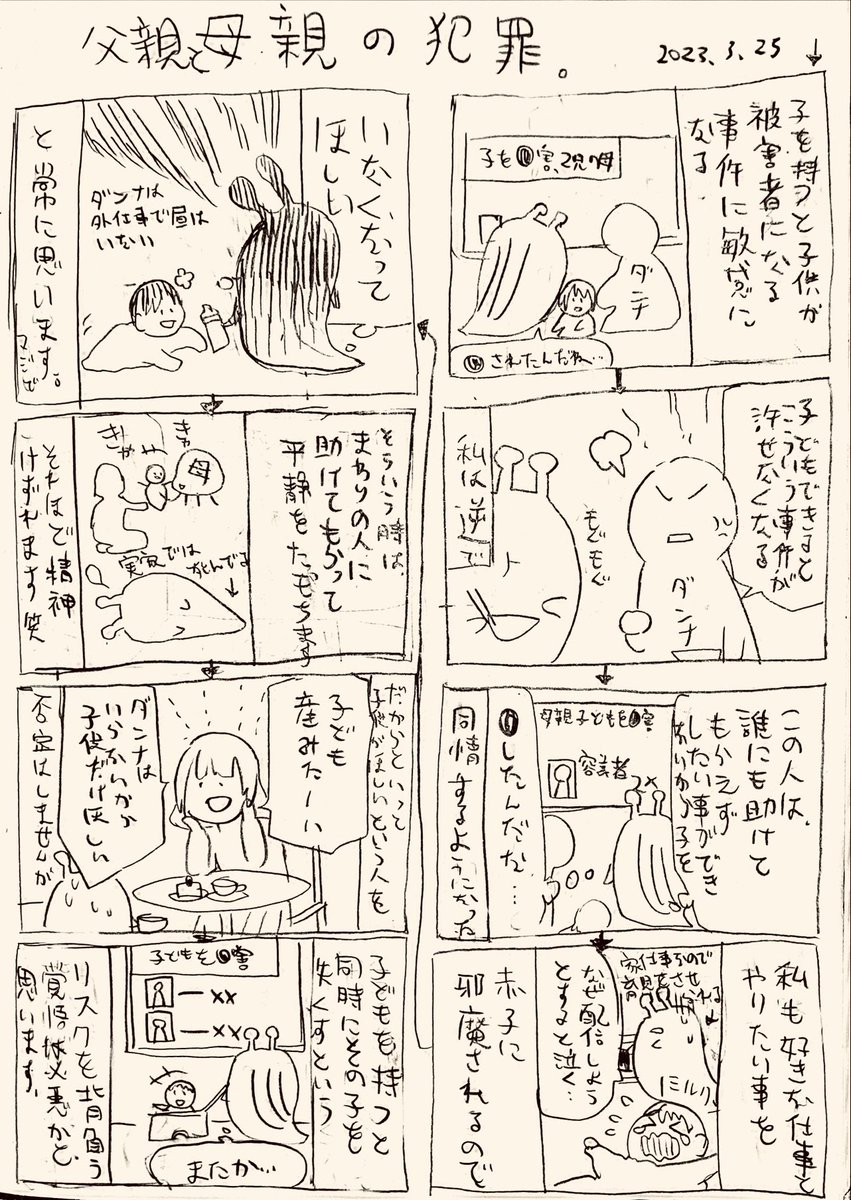 父親と母親の犯罪。
2023.3.25
子を持つと子供が
被害者になる
事件に敏感に
なる
子を㋙害、2児の母
ダンナ
されたんだね…
子どもできると
こういう事件が
許せなくなる
ダンナ
もぐもぐ
私は逆で
この人は、
誰にも助けて
もらえず
したい事ができ
ないから子を
母親子どもを
害
容疑者
したんだな…
同情するようになった
私も好きな仕事と
やりたい事を
家仕事なので
なぜ配信しよう
とすると泣く…
ミルク
赤子に
邪魔されるので
いなくなって
ほしい
ダンナは
外仕事で昼は
いない
と常に思います。
マジで
そういう時は、
まわりの人に
助けてもらって
平静をたもちます
きゃ
や
きゃ
母
実家では
死んでる
それほど精神
けずれます笑
だからといって
子供がほしいという人を
子ども
産みたーい
ダンナは
いらないから
子供だけほしい
否定はしませんが
子どもを持つと
同時にその子を
失くすという
子どもを
害
ー××
ー××
またか…
リスクを背負う
覚悟は必要かと
思います。